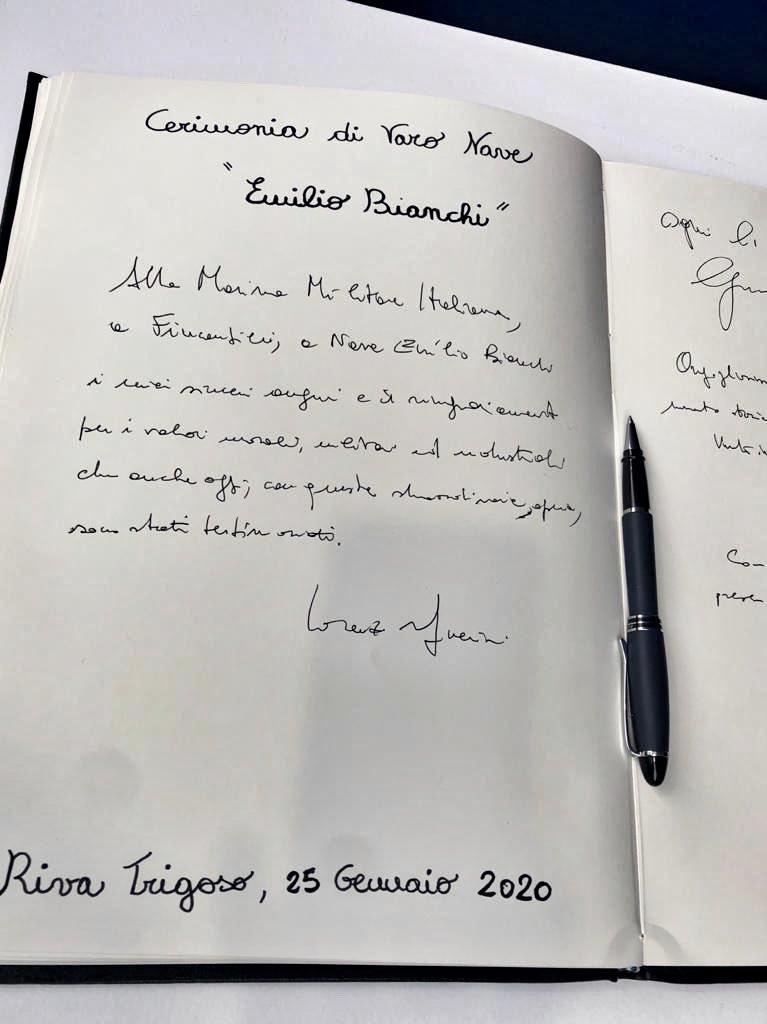 Cerimonia di Varo Nave
"Emilio Bianchi"
Alla Marina Militare Italiana,
a Fincantieri, a Nave Emilio Bianchi
i miei sinceri auguri e il ringraziamento
per i valori morali, militari ed industriali
che anche oggi, con questa straordinaria opera,
sono stati testimoniati.
Lorenzo Guerini
Riva Trigoso, 25 Gennaio 2020
ogni